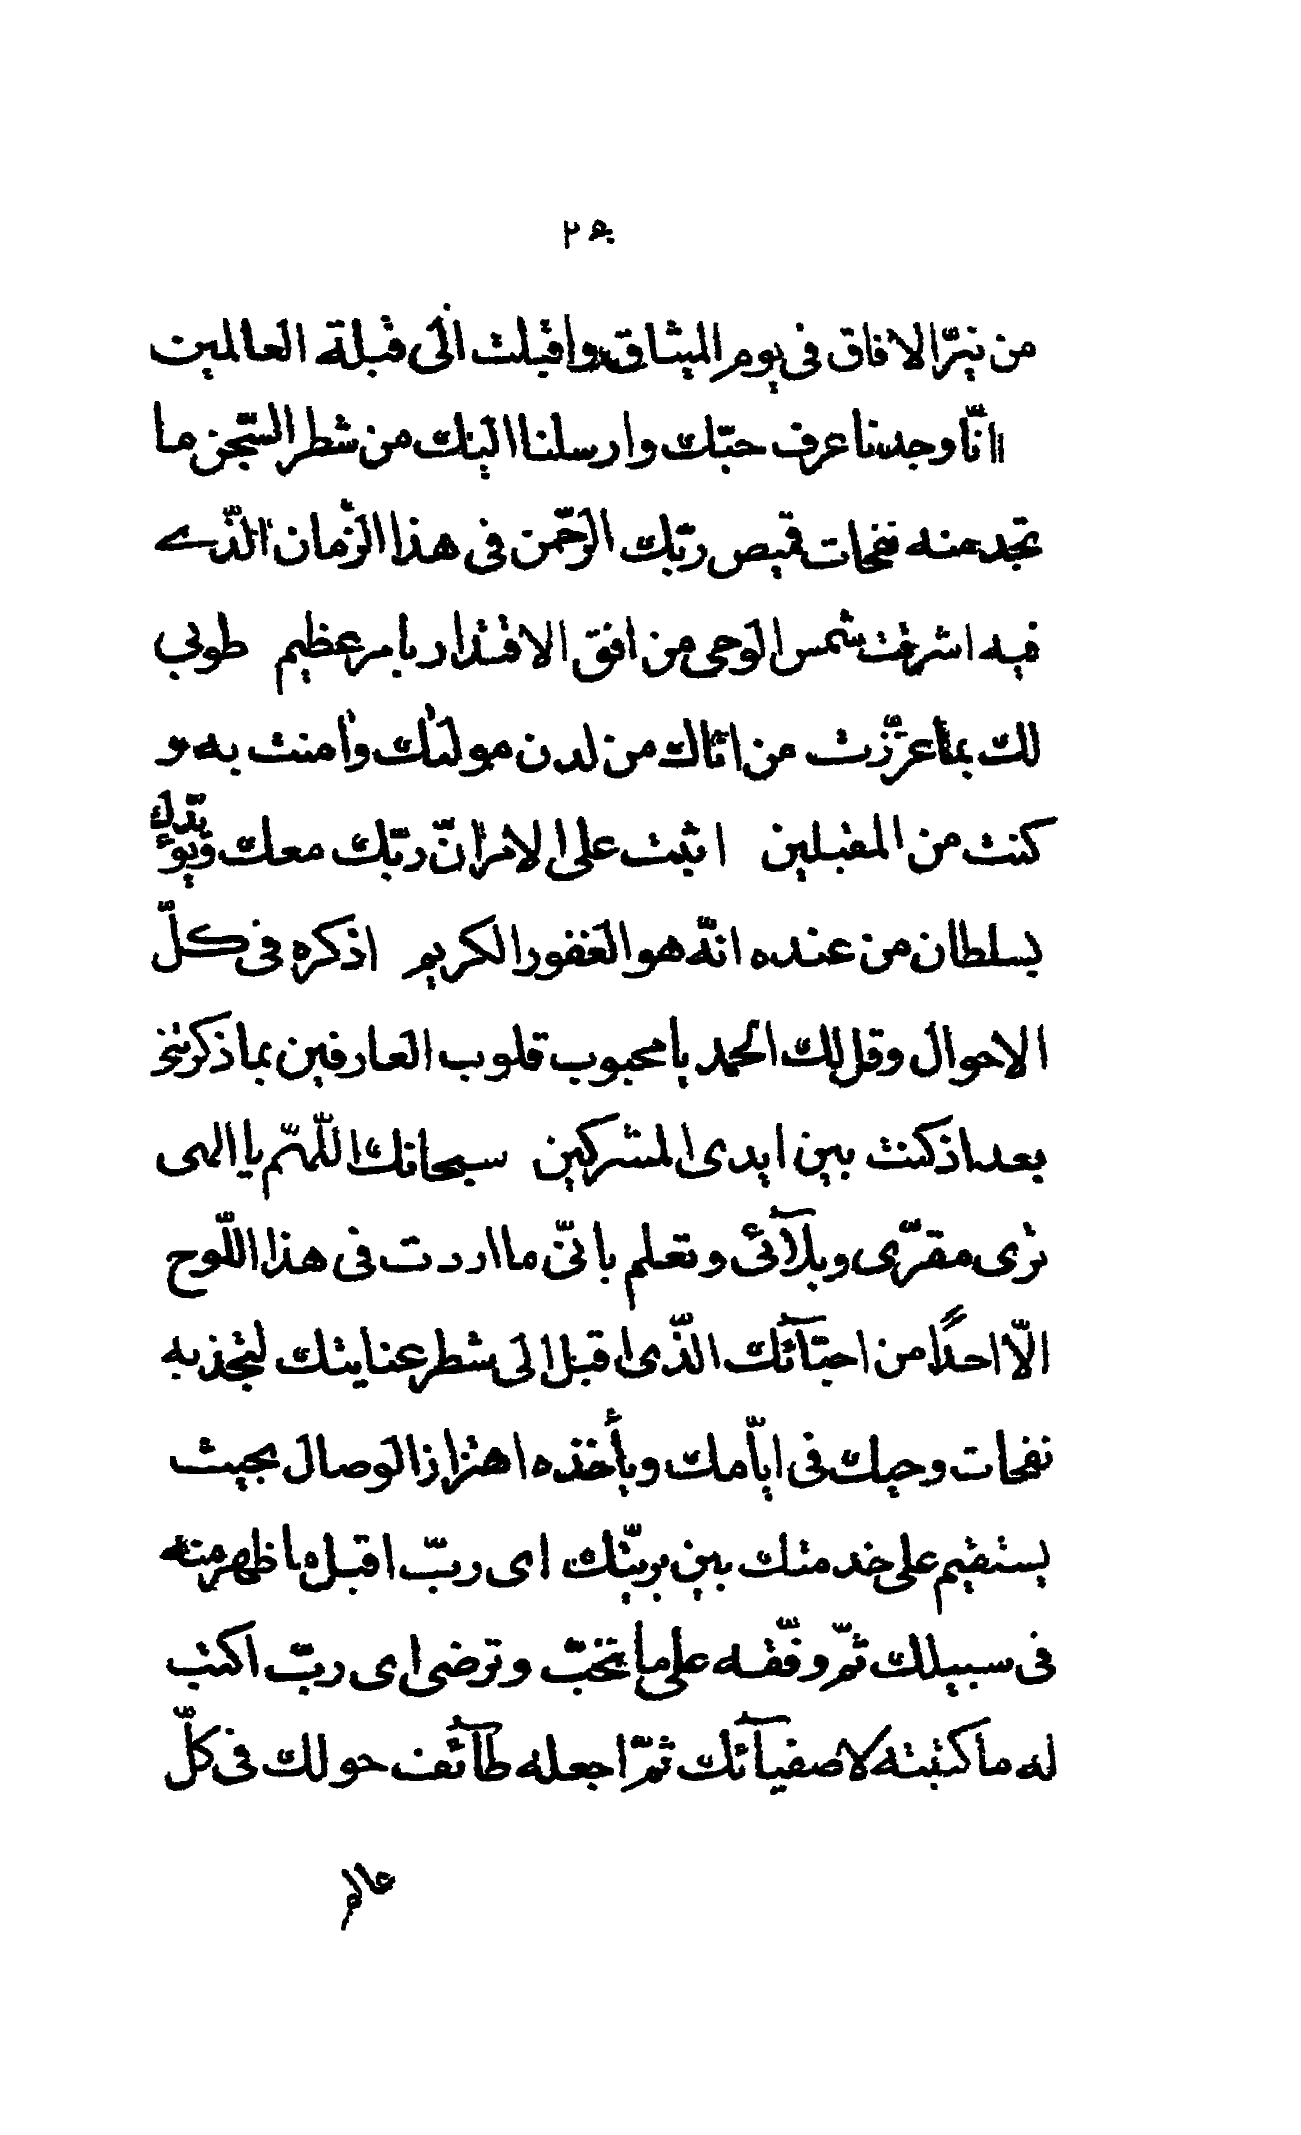 ٢٥
من نيّر الافاق فى يوم الميثاق و اقبلت الى قبلة العالمين
انّا وجدنا عرف حبّك و ارسلنا اليك من شطر السّجن ما
تجد منه نفحات قميص ربّك الرّحمن فى هذا الزّمان الّذى
فيه اشرقت شمس الوحى من افق الاقتدار بامر عظيم طوبى
لك بما عزّزت من اتاك من لدن موليك و امنت به و
كنت من المقبلين اثبت على الامر انّ ربّك معك و يؤيّدك
بسلطان من عنده انّه هو الغفور الكريم اذكره فى كلّ
الاحوال و قل لك الحمد يا محبوب قلوب العارفين بما ذكرتنى
بعد اذ كنت بين ايدى المشركين سبحانك اللّهمّ يا الهى
ترى مقرّى و بلآئى و تعلم بانّى ما اردت فى هذا اللّوح
الّا احدًا من احبّآئك الّذى اقبل الى شطر عنايتك لتجذبه
نفحات وحيك فى ايّامك و يأخذه اهتزاز الوصال بحيث
يستقيم على خدمتك بين بريّتك اى ربّ اقبل ما ظهر منه
فى سبيلك ثمّ وفّقه على ما تحبّ و ترضى اى ربّ اكتب
له ما كتبته لاصفيآئك ثمّ اجعله طآئف حولك فى كلّ
عالم